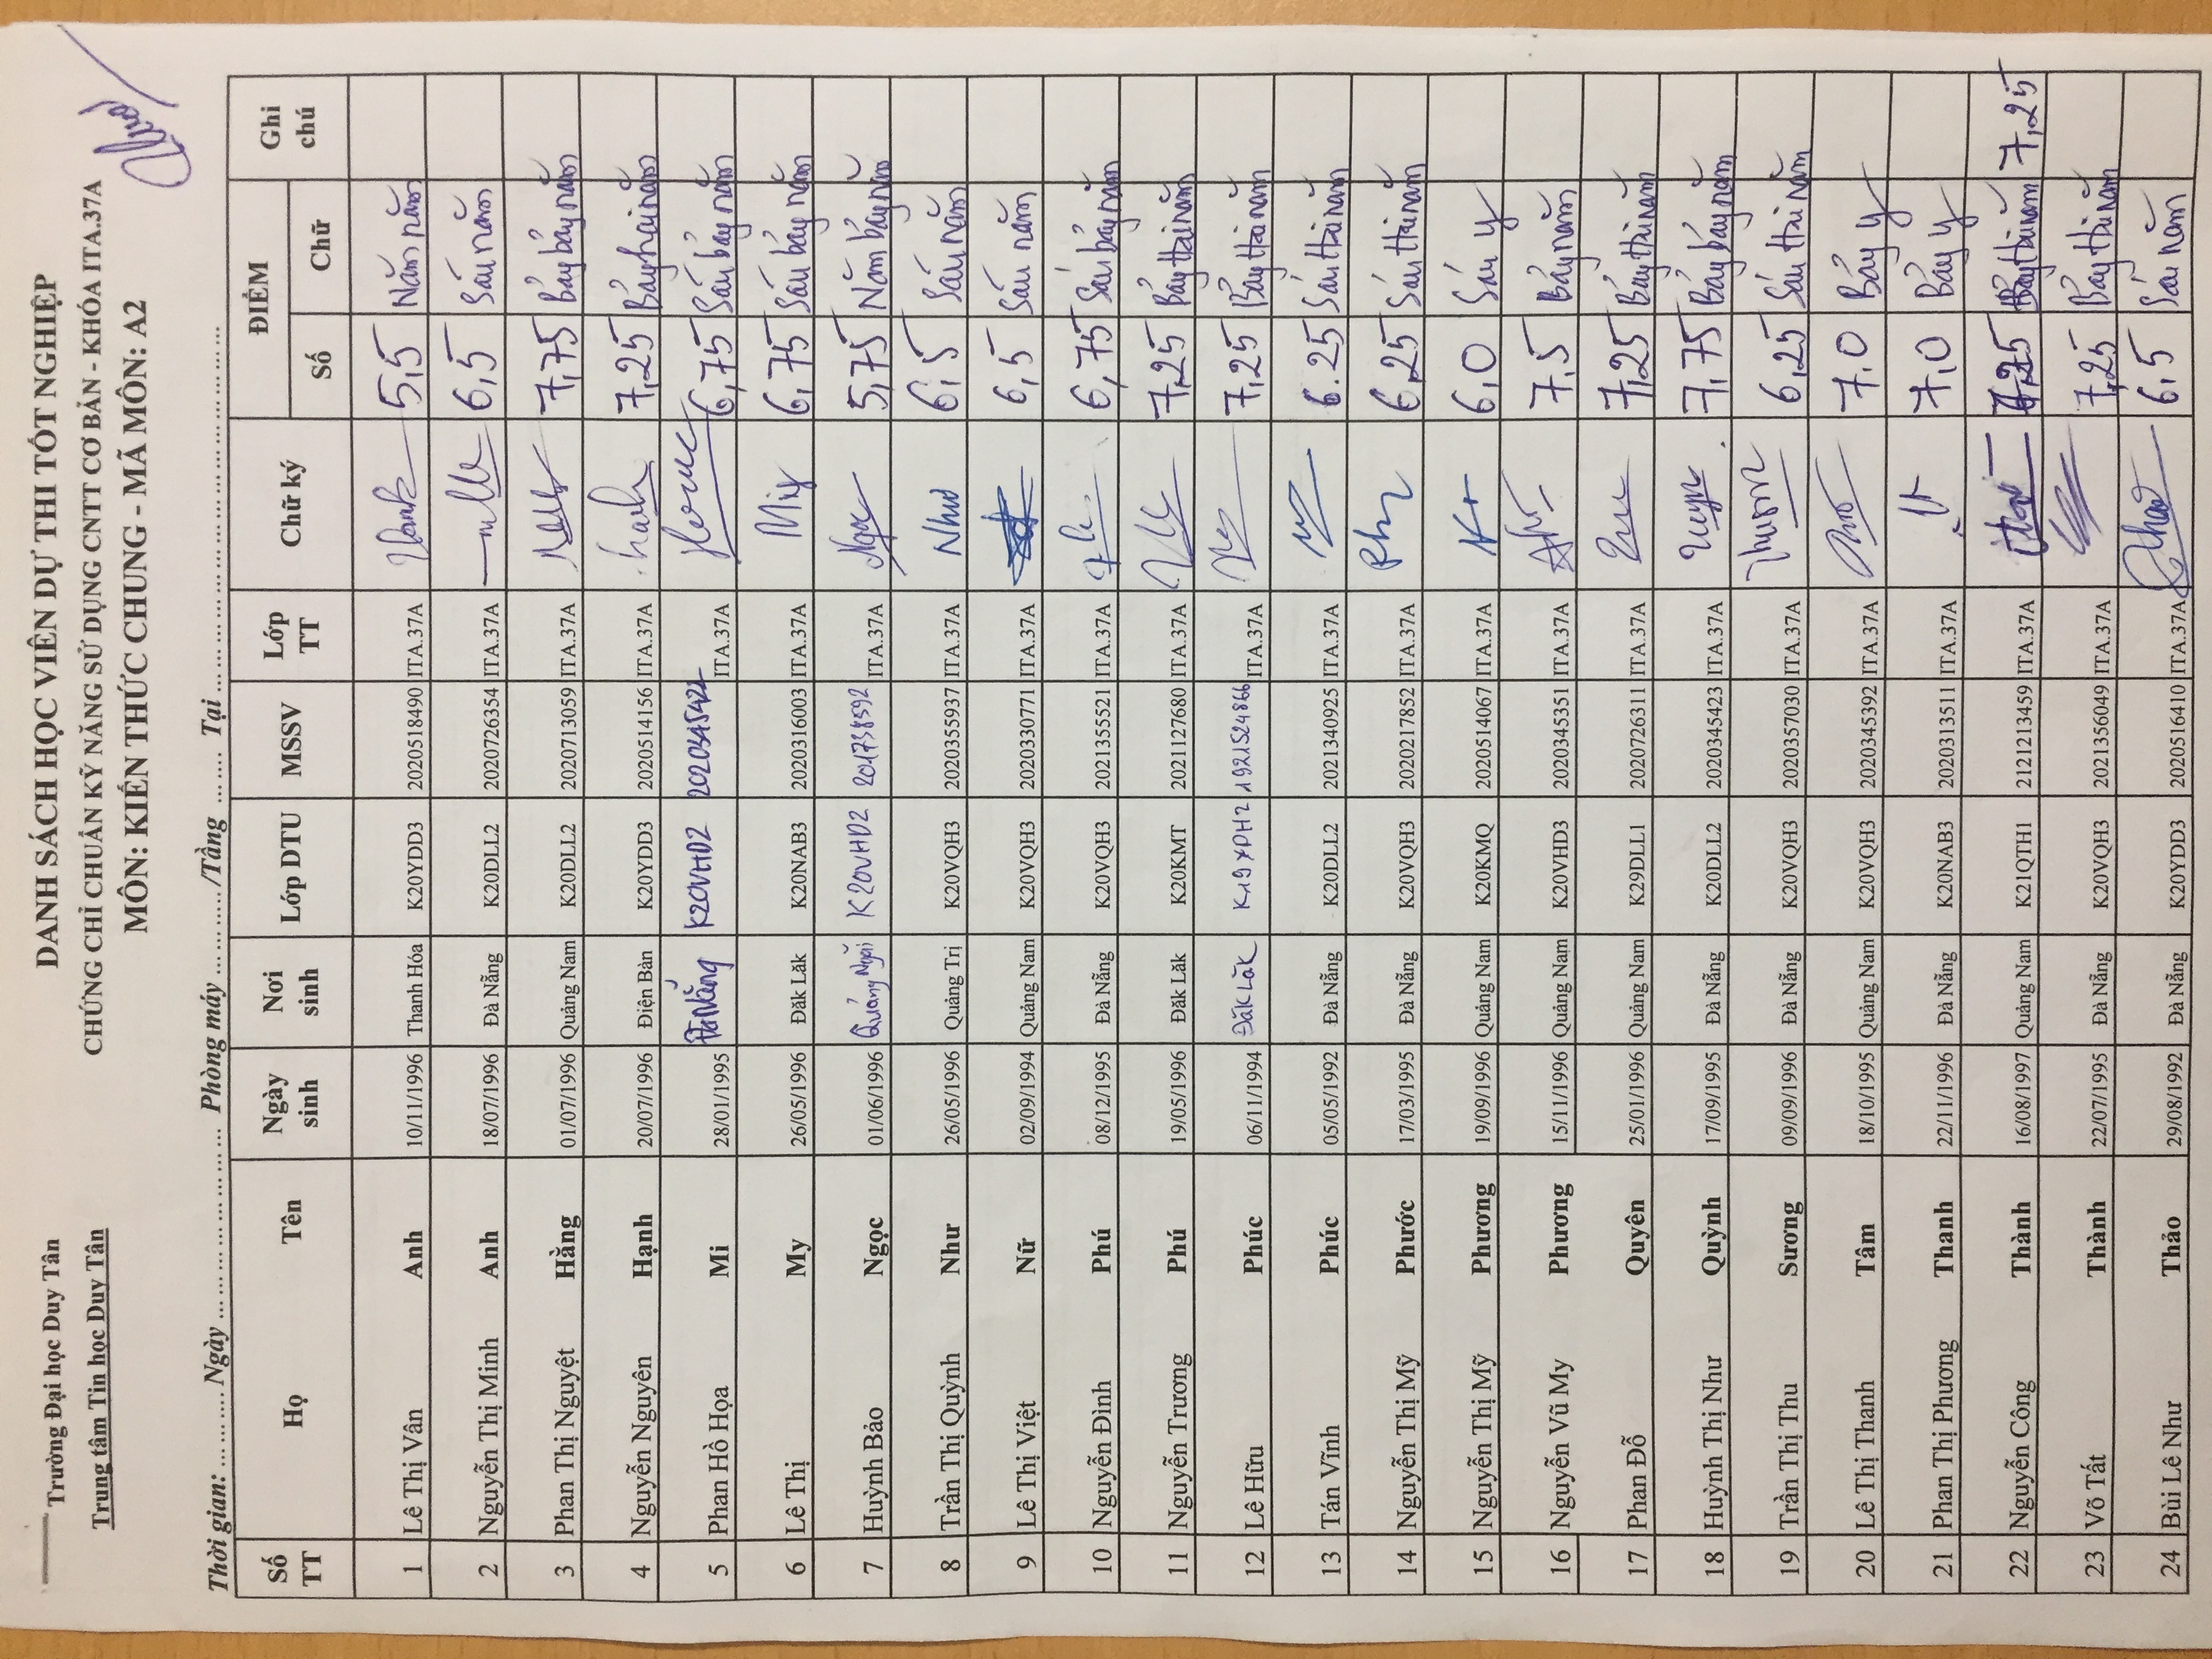 Trường Đại học Duy Tân
Trung tâm Tin học Duy Tân
DANH SÁCH HỌC VIÊN DỰ THI TỐT NGHIỆP
CHỨNG CHỈ CHUẨN KỸ NĂNG SỬ DỤNG CNTT CƠ BẢN - KHÓA ITA.37A
MÔN: KIẾN THỨC CHUNG - MÃ MÔN: A2
Thời gian: ............ Ngày ............................ Phòng máy ............/Tầng ...... Tại ............................
Số TT Họ Tên Ngày sinh Nơi sinh Lớp DTU MSSV Lớp TT Chữ ký ĐIỂM Ghi chú
Số Chữ
1 Lê Thị Vân Anh 10/11/1996 Thanh Hóa K20YDD3 2020518490 ITA.37A 5,5 Năm năm
2 Nguyễn Thị Minh Anh 18/07/1996 Đà Nẵng K20DLL2 2020726354 ITA.37A 6,5 Sáu năm
3 Phan Thị Nguyệt Hằng 01/07/1996 Quảng Nam K20DLL2 2020713059 ITA.37A 7,75 Bảy bảy năm
4 Nguyễn Nguyên Hạnh 20/07/1996 Điện Bàn K20YDD3 2020514156 ITA.37A hạnh 7,25 Bảy hai năm
5 Phan Hồ Họa Mi 28/01/1995 Đà Nẵng K20VHD2 2020345422 ITA.37A 6,75 Sáu bảy năm
6 Lê Thị My 26/05/1996 Đăk Lăk K20NAB3 2020316003 ITA.37A My 6,75 Sáu bảy năm
7 Huỳnh Bảo Ngọc 01/06/1996 Quảng Ngãi K20VHD2 2021738592 ITA.37A Ngọc 5,75 Năm bảy năm
8 Trần Thị Quỳnh Như 26/05/1996 Quảng Trị K20VQH3 2020355937 ITA.37A Như 6,5 Sáu năm
9 Lê Thị Việt Nữ 02/09/1994 Quảng Nam K20VQH3 2020330771 ITA.37A 6,5 Sáu năm
10 Nguyễn Đình Phú 08/12/1995 Đà Nẵng K20VQH3 2021355521 ITA.37A 6,75 Sáu bảy năm
11 Nguyễn Trương Phú 19/05/1996 Đăk Lăk K20KMT 2021127680 ITA.37A 7,25 Bảy Hai năm
12 Lê Hữu Phúc 06/11/1994 Đăk Lăk K19YDH2 1921524866 ITA.37A 7,25 Bảy Hai năm
13 Tán Vĩnh Phúc 05/05/1992 Đà Nẵng K20DLL2 2021340925 ITA.37A 6.25 Sáu Hai năm
14 Nguyễn Thị Mỹ Phước 17/03/1995 Đà Nẵng K20VQH3 2020217852 ITA.37A 6,25 Sáu Hai năm
15 Nguyễn Thị Mỹ Phương 19/09/1996 Quảng Nam K20KMQ 2020514067 ITA.37A 6,0 Sáu y
16 Nguyễn Vũ My Phương 15/11/1996 Quảng Nam K20VHD3 2020345351 ITA.37A 7,5 Bảy năm
17 Phan Đỗ Quyên 25/01/1996 Quảng Nam K29DLL1 2020726311 ITA.37A 7,25 Bảy Hai năm
18 Huỳnh Thị Như Quỳnh 17/09/1995 Đà Nẵng K20DLL2 2020345423 ITA.37A 7,75 Bảy bảy năm
19 Trần Thị Thu Sương 09/09/1996 Đà Nẵng K20VQH3 2020357030 ITA.37A 6,25 Sáu Hai năm
20 Lê Thị Thanh Tâm 18/10/1995 Quảng Nam K20VQH3 2020345392 ITA.37A 7.0 Bảy y
21 Phan Thị Phương Thanh 22/11/1996 Đà Nẵng K20NAB3 2020313511 ITA.37A 7,0 Bảy y
22 Nguyễn Công Thành 16/08/1997 Quảng Nam K21QTH1 2121213459 ITA.37A 7,25 Bảy Hai năm 7,25
23 Võ Tất Thành 22/07/1995 Đà Nẵng K20VQH3 2021356049 ITA.37A 7,25 Bảy Hai năm
24 Bùi Lê Như Thảo 29/08/1992 Đà Nẵng K20YDD3 2020516410 ITA.37A Thảo 6,5 Sáu năm